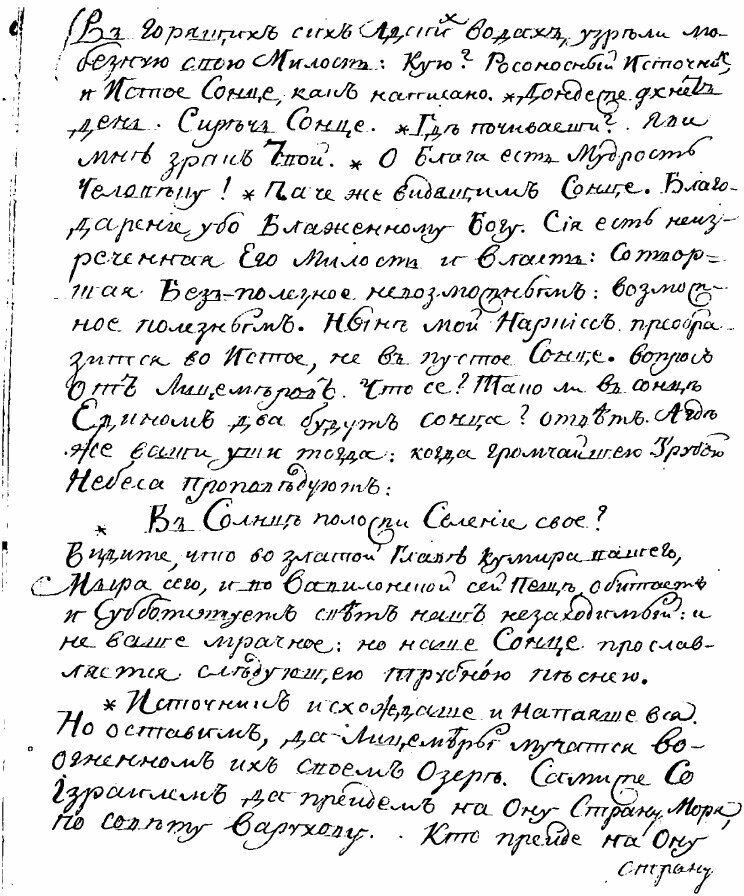 Въ горящихъ сихъ Адскихъ водахъ, узрѣли лю-
безную свою Милость: Кую? Росоносный Источникъ,
и Истое Сонце, какъ написано. * Дондеже дхнетъ
день. Сирѣчь Сонце. * Гдѣ почиваеши? Яви
мнѣ зракъ Твой. * О блага есть Мудрость
Человѣку! * Паче же видящимъ Сонце. Благо-
дареніе убо Блаженному Богу. Сія есть неиз-
реченная Его Милость и Власть: Сотвор-
шая Безъ-полезное невозможнымъ: возмож-
ное полезнымъ. Нынѣ мой Наркіссъ преобра-
зится во Истое, не въ пустое Сонце. вопросъ
отъ Лицемѣровъ. Что се? Тако ли въ сонцѣ
Единомъ два будутъ сонца? отвѣтъ. А гдѣ
же ваши уши тогда: когда громчайшею Трубою
Небеса проповѣдуютъ:
* Въ Солнцѣ положи Селеніе свое?
Видите, что во златой Главѣ кумира вашего,
Мыра сего, и во Вавилонской сей Пещѣ, обитаетъ
и Субботствуетъ свѣтъ нашъ незаходимый: и
не ваше мрачное: но наше Сонце прослав-
ляется слѣдующею трубною пѣснею.
* Источникъ исхождаше и напаяше вся.
Но оставимъ, да Лицемѣры мучатся во-
огненномъ ихъ своемъ Озерѣ. Сами же Со
Ізраилемъ да прейдемъ на Ону Страну Моря,
по совѣту Варухову. Кто прейде на Ону
страну